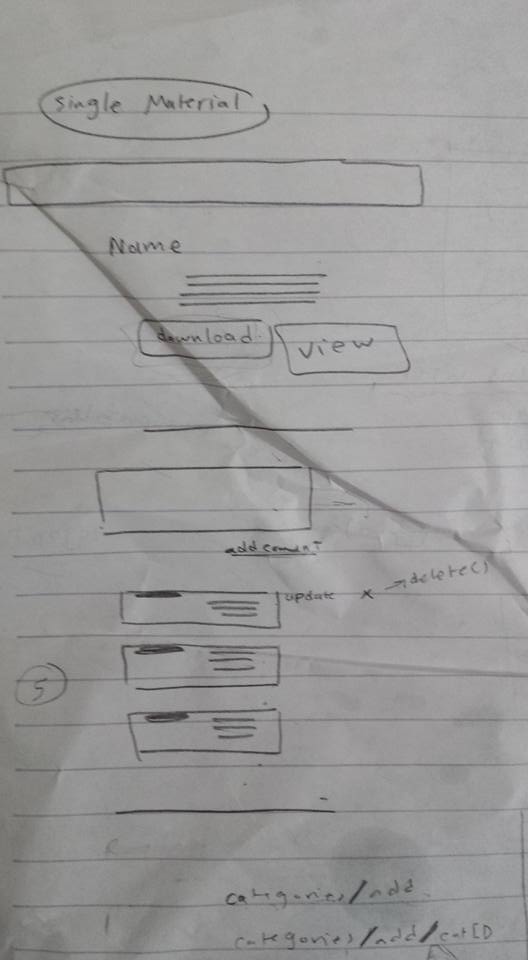 Single Material
Name
download
view
add coment
update x → delete()
5
categories/add
categories/add/catID